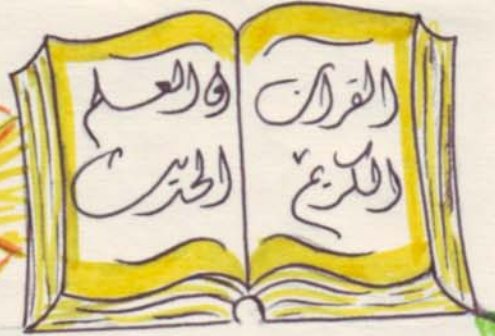 القرآن
الكريم
والعلم
الحديث